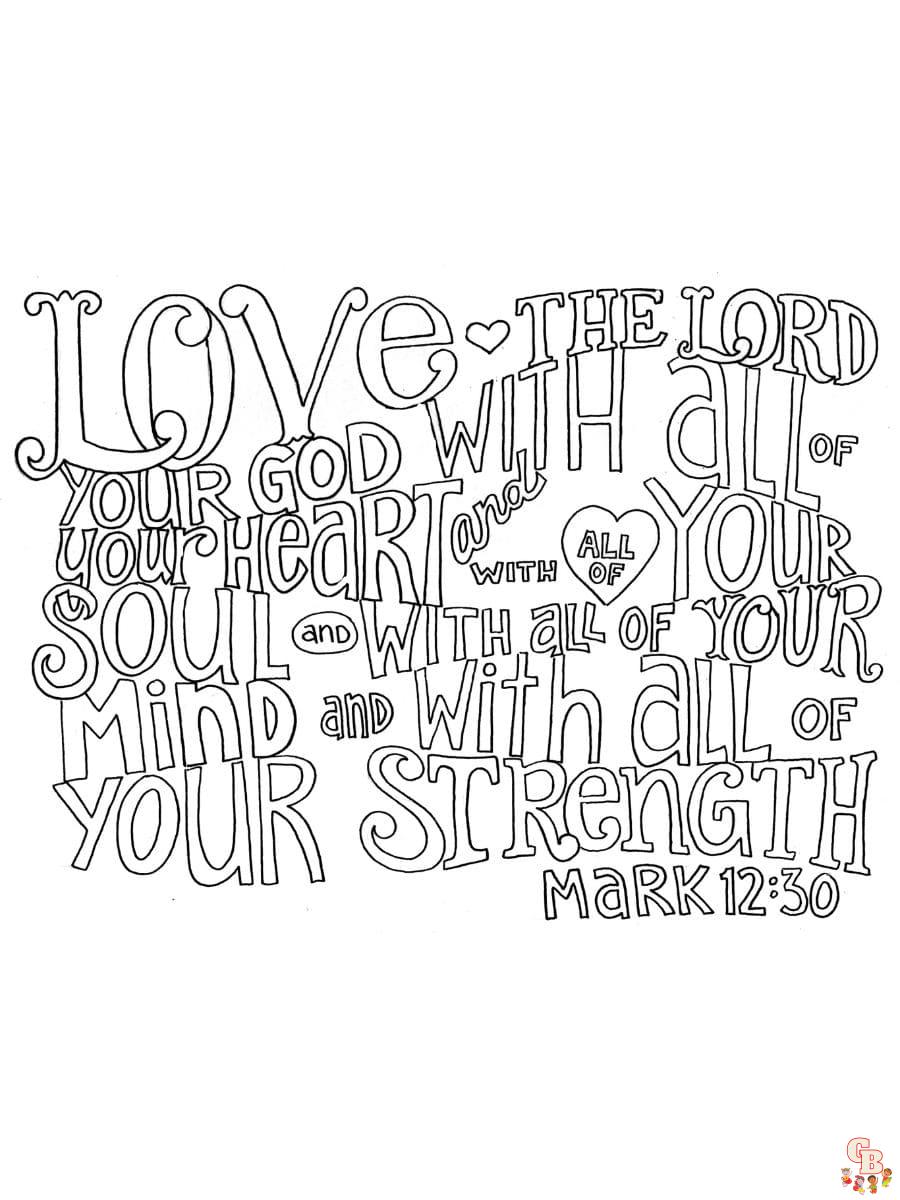 Love THE LORD
YOUR GOD WITH aLL OF
your HeaRT and WITH ALL OF YOUR
SOUL and WITH aLL OF YOUR
MinD anD With aLL OF
YOUR STRenGTH
MaRK 12:30
GB